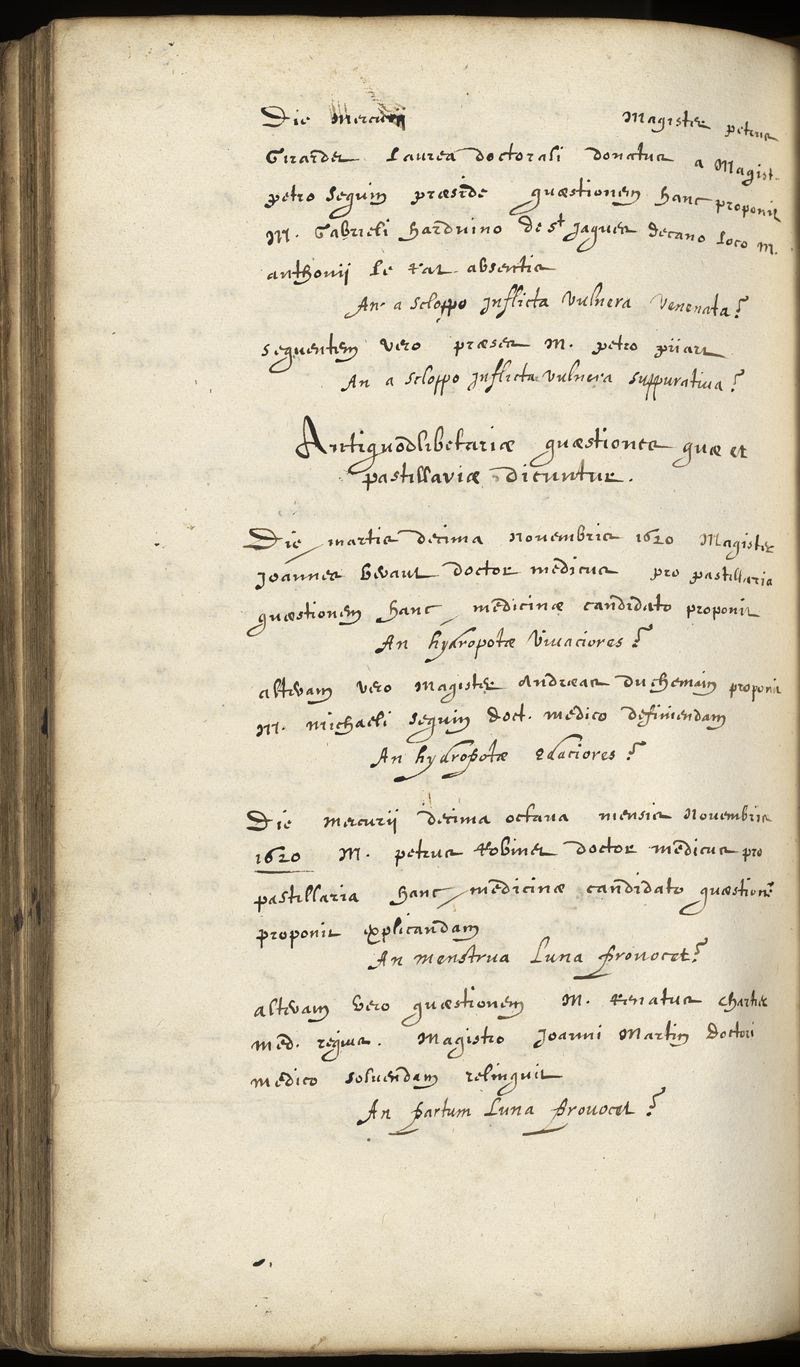 Die Mercurii Magister petrus
Girardet Laurea doctorali donatus a Magist.
petro Seguin præside quæstionem hanc proponit
M. Gabrieli harduino de st Jaques decano loco M.
anthonij le absentis
An a scloppo inflicta vulnera venenata?
sequentem vero præses M. petro pijart
An a scloppo inflicta vulnera suppurativa?
Antiquodlibetariæ quæstiones quæ et
pastillariæ dicuntur.
Die martis decima novembris 1620 Magister
Joannes doctor medicus pro pastillaria
quæstionem hanc medicinæ candidato proponit
An hydropotæ vivaciores?
alteram vero Magister Andreas duchemin proponit
M. michaeli seguin doct. medico definiendam
An hydropotæ edaciores?
Die mercurij decima octava mensis Novembris
1620 M. petrus Robinet doctor medicus pro
pastillaria hanc medicinæ candidato quæstionē
proponit explicandam
An menstrua Luna provocet?
alteram vero quæstionem M. Renatus chartier
med. regius. Magistro Joanni Martin doctori
medico solvendam relinquit
An partum Luna provocet?